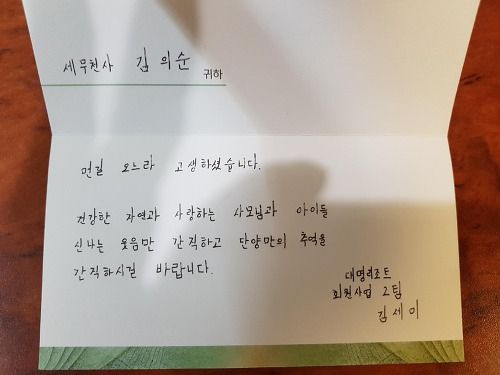 세무천사 김의순 귀하
먼길 오느라 고생하셨습니다.
건강한 자연과 사랑하는 사모님과 아이들
신나는 웃음만 간직하고 단양만의 추억을
간직하시길 바랍니다.
대명리조트
회원사업 2팀
김세이